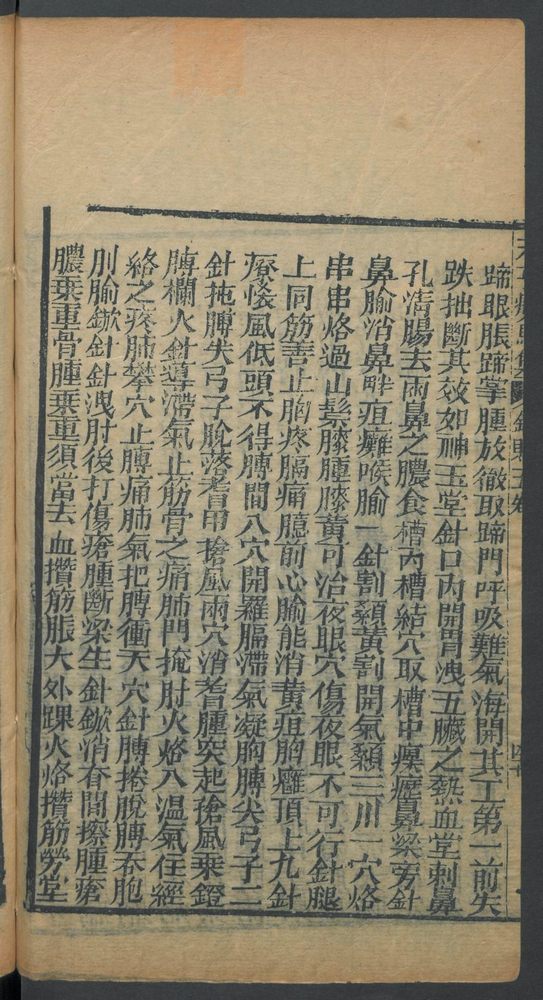 蹄眼脹蹄掌腫放徹取蹄門呼吸難氣海開其工第一前失
跌拙斷其效如神玉堂針口內開胃洩五臟之熱血堂刺鼻
孔清腸去兩鼻之膿食槽內槽結穴取槽中瘼癧鼻梁旁針
鼻腧消鼻畔疽癰喉腧一針割顙黃割開氣顙三川一穴烙
串串烙過山鬃膝腫膝黃可治夜眼穴傷夜眼不可行針腿
上同筋善止胸疼膈痛臆前心腧能消黃疽胸癰頂上九針
療惓風低頭不得膊間八穴開羅膈滯氣凝胸膊尖弓子二
針拖膊失弓子脫落着甲搶風兩穴消着腫突起搶風乗鐙
膊欄火針導滯氣止筋骨之痛肺門掩肘火烙八溫氣住經
絡之疼肺攀穴止膊痛肺氣把膊衝天穴針膊捲脫膊吞胞
則腧鍁針針洩肘後打傷瘡腫斷梁生針鍁消脊間擦腫瘡
膿乗重骨腫乗重須當去血攢筋脹大外踝火烙攢筋勞堂